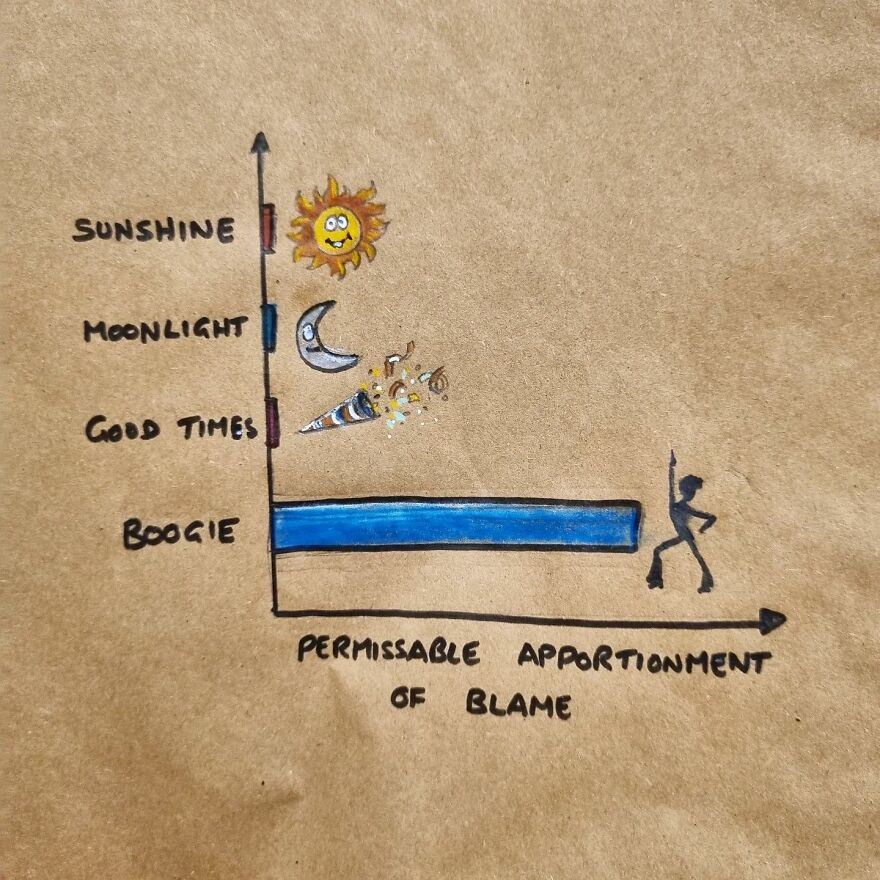 SUNSHINE
MOONLIGHT
GOOD TIMES
BOOGIE
PERMISSABLE APPORTIONMENT
OF BLAME